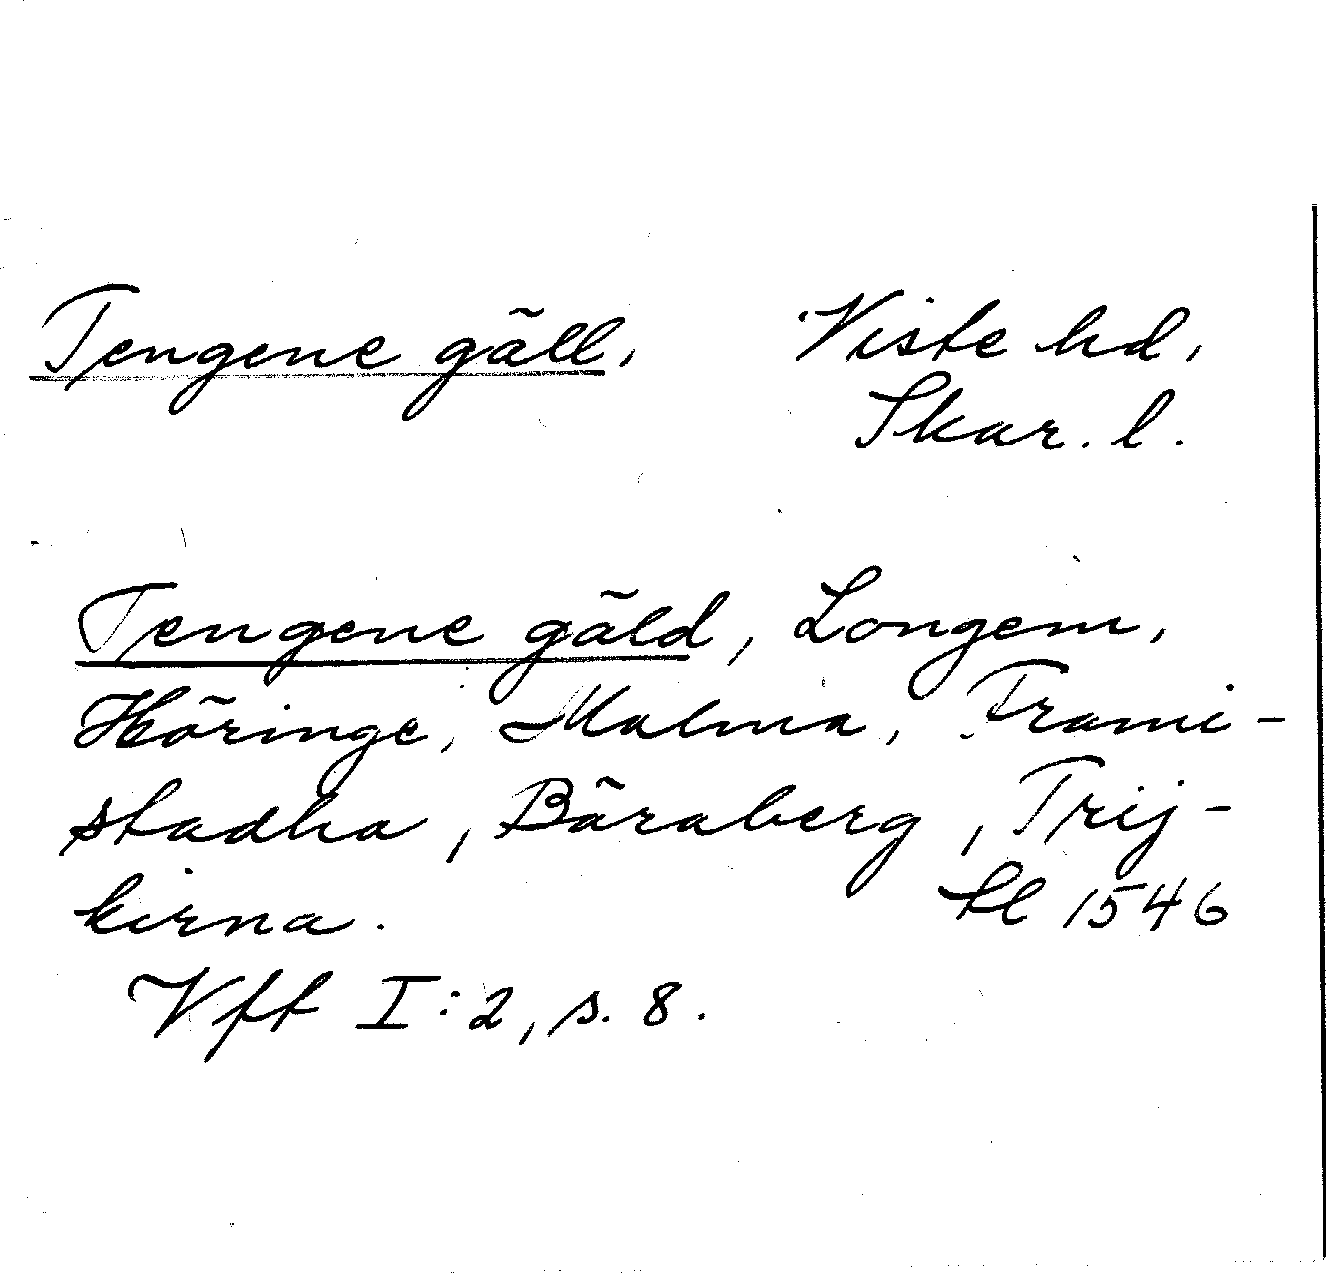 Tengene gäll, Viste hd,
Skar. l.
Tengene gäld, Longem,
Häringe, Malma, Trami-
stadha, Bäraberg, Trij-
kirna. Sl 1546
Vff I:2, s. 8.